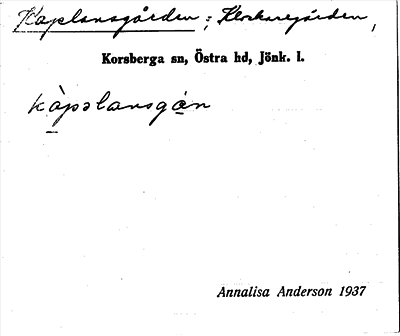 Kaplansgården ; Klockaregården,
Korsberga sn, Östra hd, Jönk. l.
kàpslansgån
Annalisa Anderson 1937